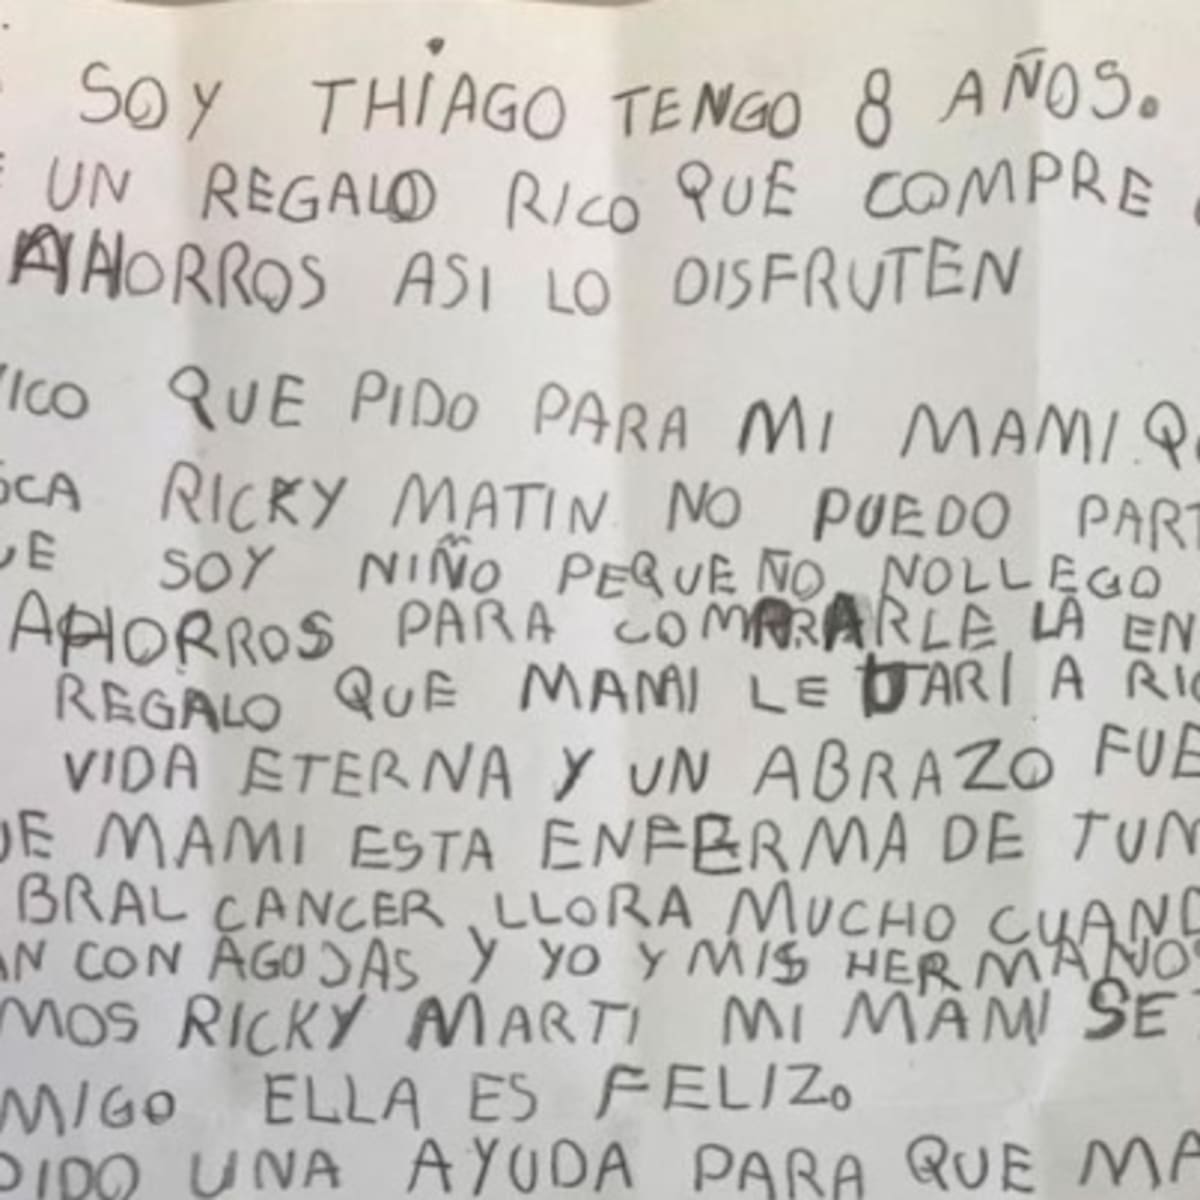 SOY THIAGO TENGO 8 AÑOS.
UN REGALO RICO QUE COMPRE
AHORROS ASI LO DISFRUTEN
ICO QUE PIDO PARA MI MAMI
CA RICKY MATIN NO PUEDO PART
UE SOY NIÑO PEQUEÑO NOLLEGO
AHORROS PARA COMPRARLE LA EN
REGALO QUE MAMI LE DARI A RIC
VIDA ETERNA Y UN ABRAZO FUE
UE MAMI ESTA ENFERMA DE TUM
BRAL CANCER LLORA MUCHO CUAND
AN CON AGUJAS Y YO Y MIS HERMANOS
MOS RICKY MARTI MI MAMI SE
MIGO ELLA ES FELIZ.
PIDO UNA AYUDA PARA QUE MA